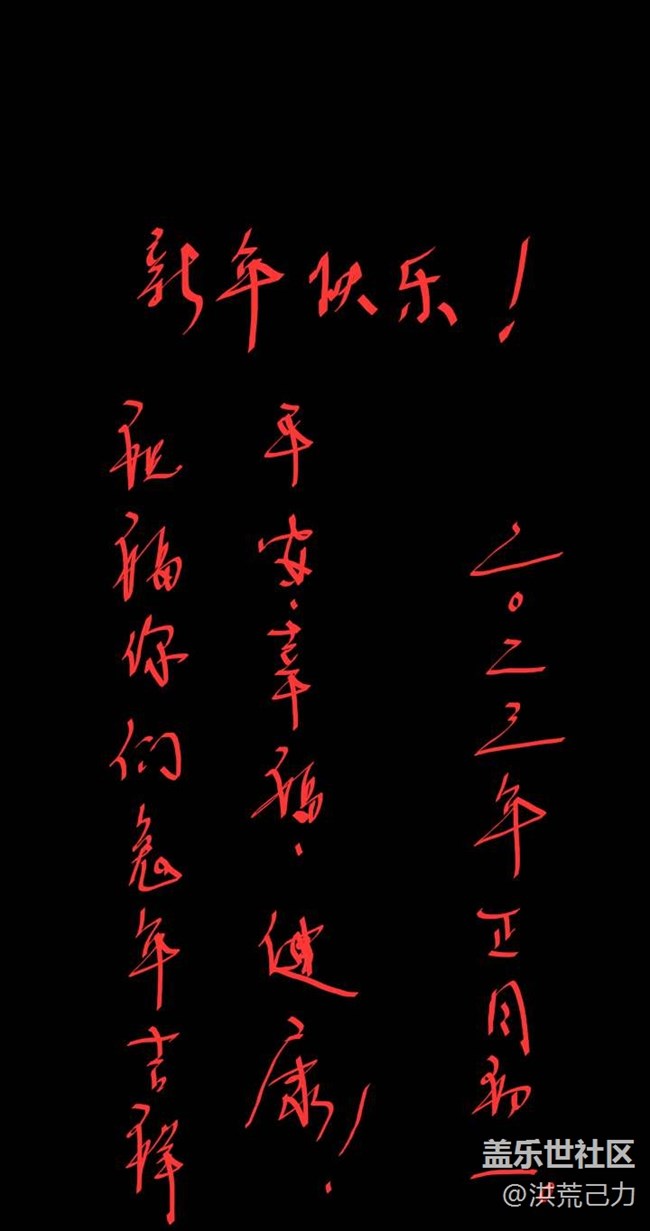 新年快乐！
祝福你们兔年吉祥
平安·幸福·健康！
二0二三年正月初一.
盖乐世社区
@洪荒己力